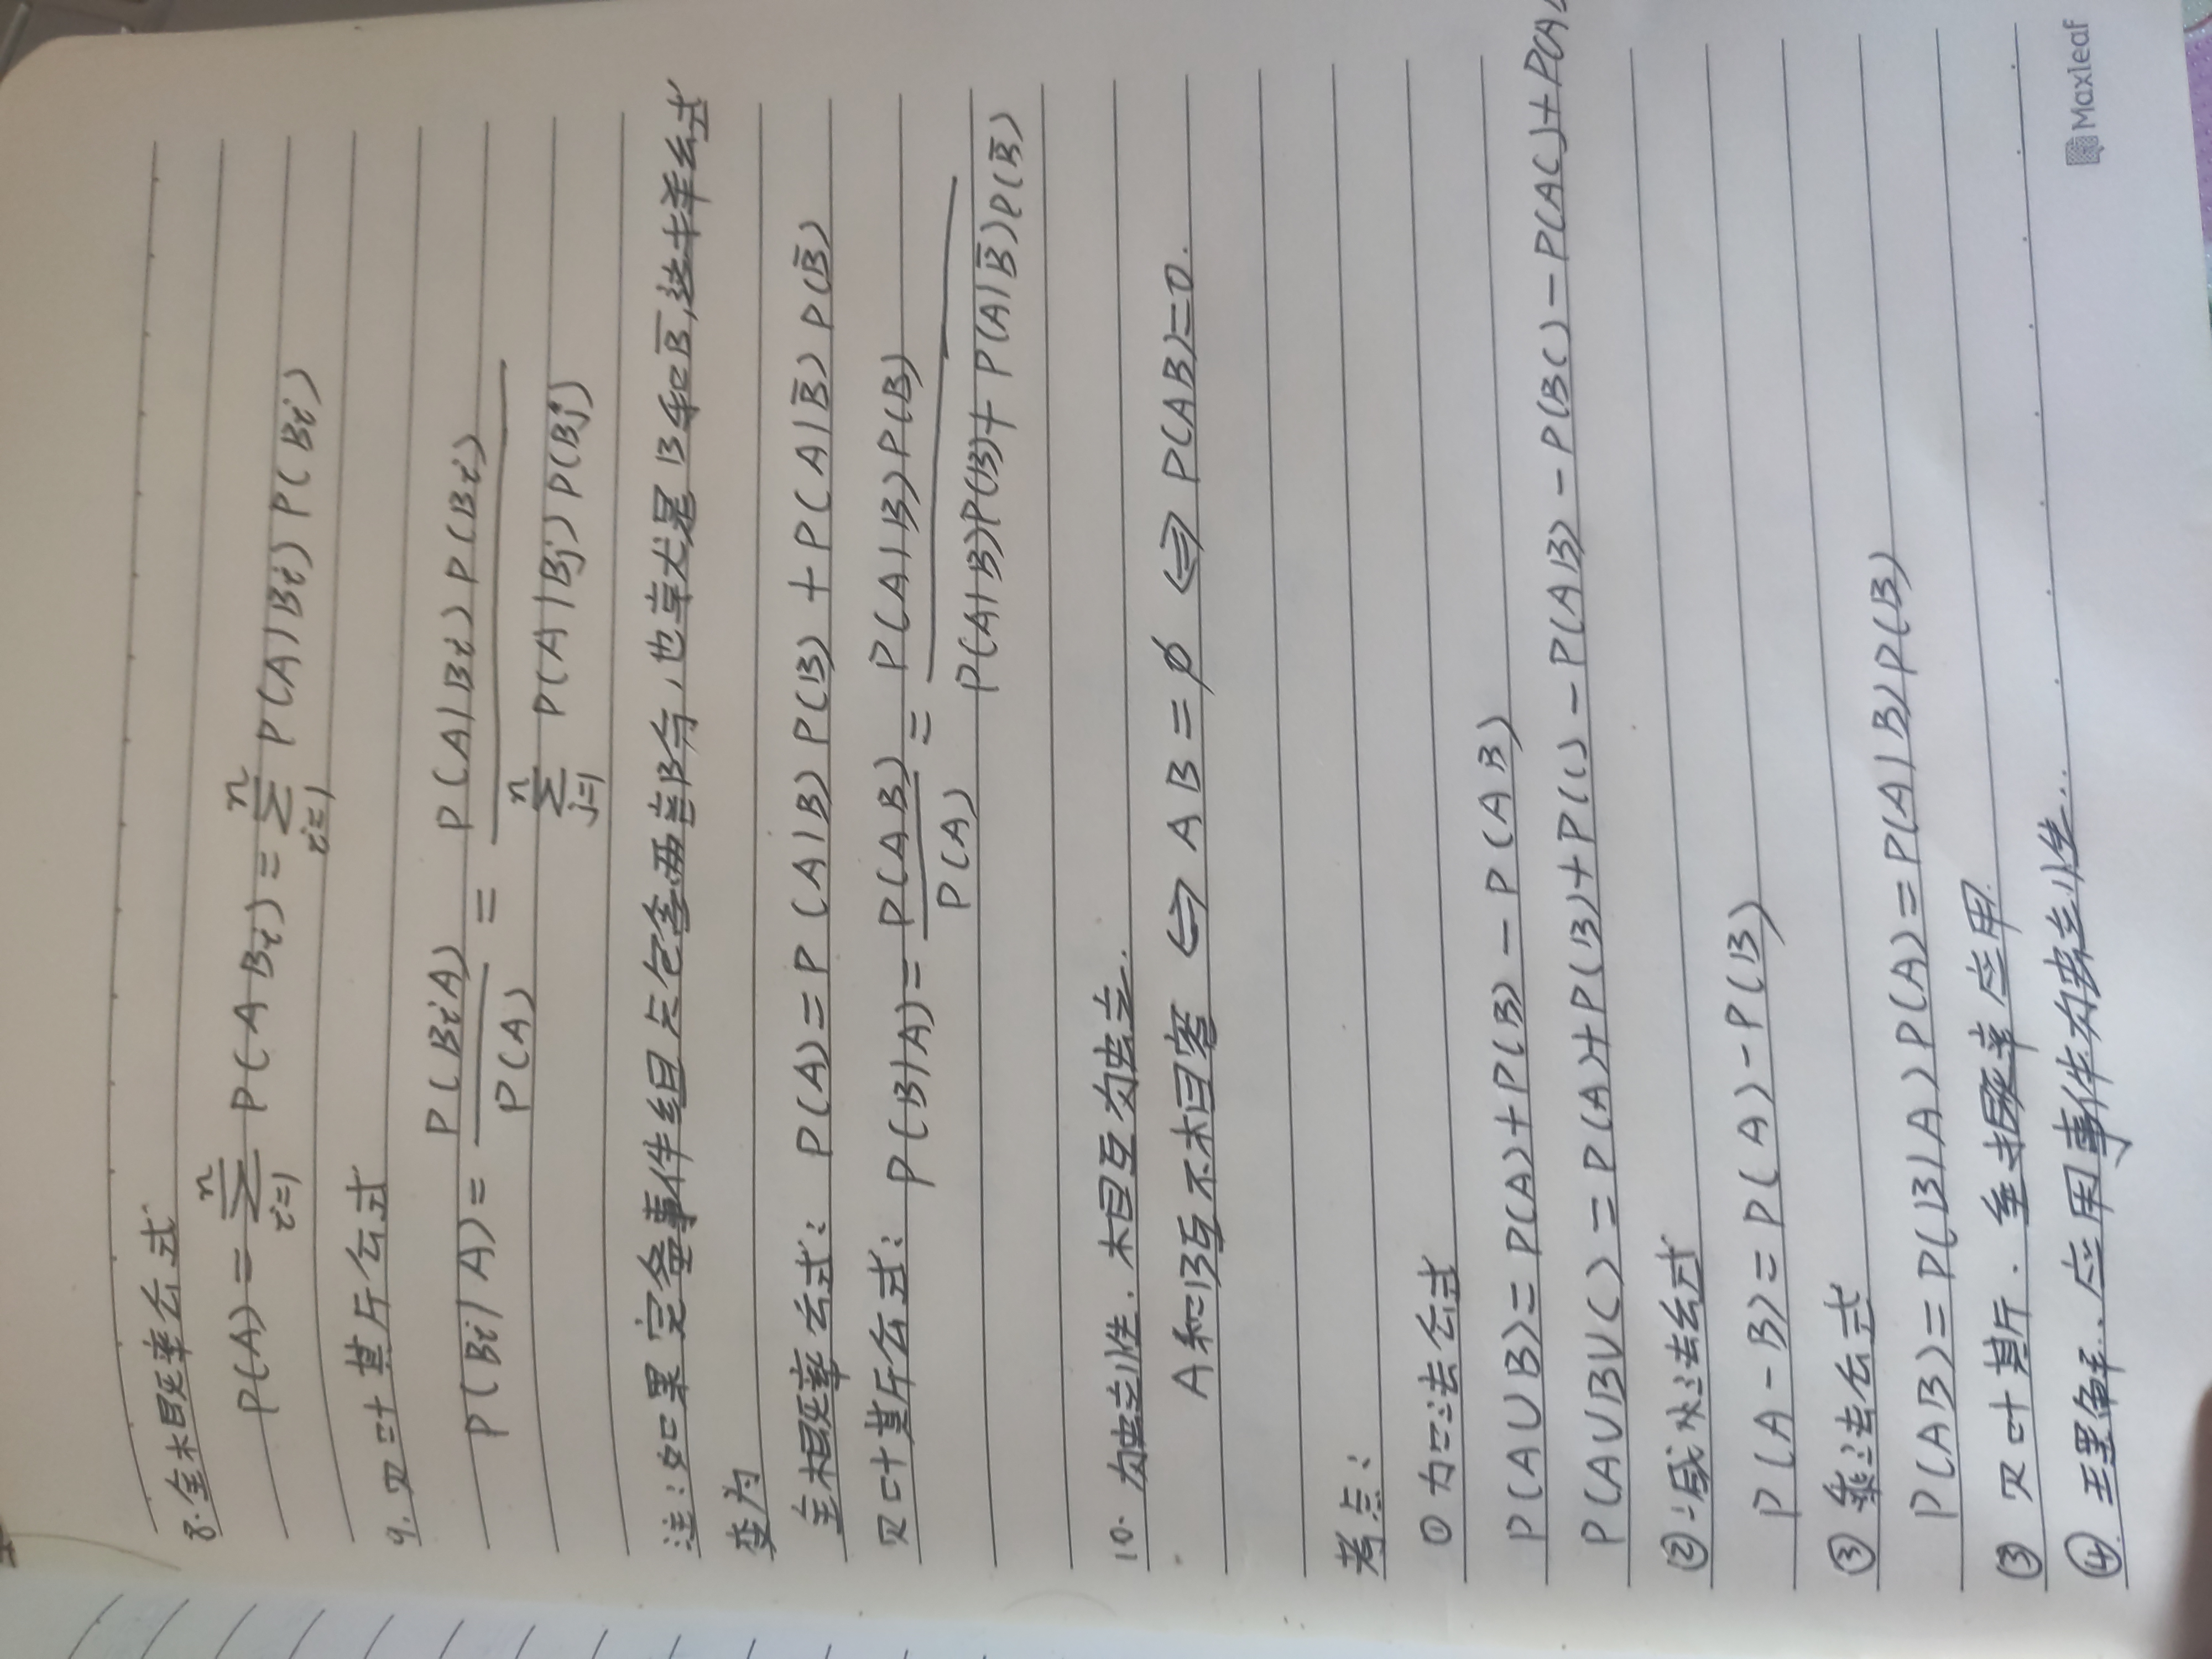 8.全概率公式
P(A) = \sum_{i=1}^{n} P(ABi) = \sum_{i=1}^{n} P(A|Bi) P(Bi)
9.贝叶其斤公式
P(Bi|A) = \frac{P(BiA)}{P(A)} = \frac{P(A|Bi) P(Bi)}{\sum_{j=1}^{n} P(A|Bj) P(Bj)}
注:如果完备事件组只包含两部分,也就是B和\bar{B},这样公式
变为
全概率公式: P(A) = P(A|B) P(B) + P(A|\bar{B}) P(\bar{B})
贝叶其斤公式: P(B|A) = \frac{P(AB)}{P(A)} = \frac{P(A|B)P(B)}{P(A|B)P(B) + P(A|\bar{B})P(\bar{B})}
10. 独立性.相互独立.
A和B互不相容 ⇔ AB = ϕ ⇔ P(AB)=0.
考点:
① 加法公式
P(A∪B) = P(A)+P(B) – P(AB)
P(A∪B∪C) = P(A)+P(B)+P(C) – P(AB) – P(BC) – P(AC)+P(A
② 减法公式
P(A–B) = P(A) – P(B)
③ 乘法公式
P(AB) = P(B|A) P(A) = P(A|B) P(B)
③ 贝叶其斤.全概率应用.
④ 理解.应用事件独立性..
Maxleaf